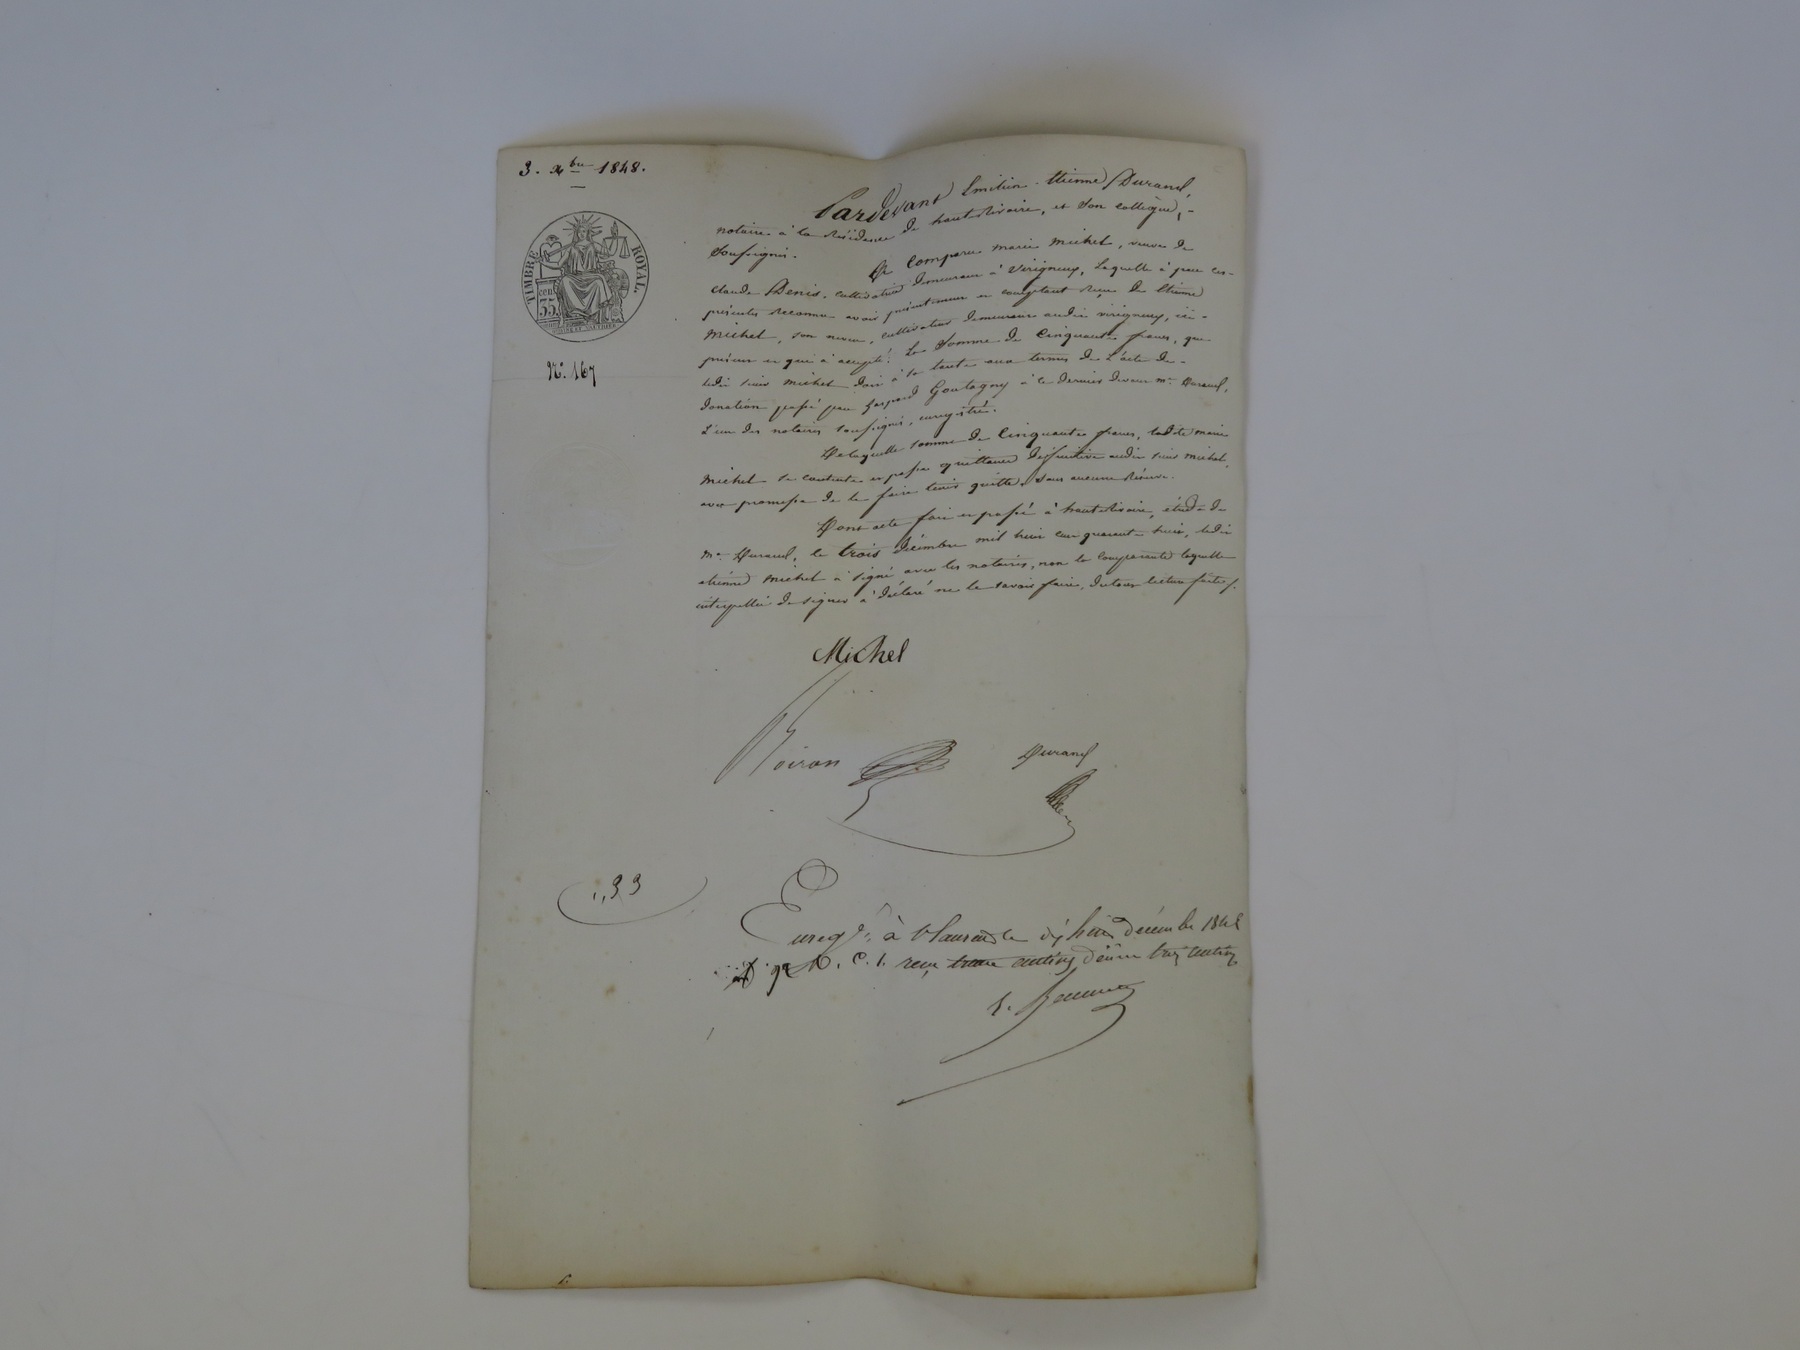 3. Xbre 1848.
TIMBRE ROYAL.
cen. 35.
No. 167
Pardevant Emilien-Etienne Durand,
notaire à la Résidence de hauterivoire, et son collègue,-
Soussignés.
A Comparu marie michel, veuve de
claude Denis, cultivatrice demeurant à virigneux, Laquelle à par ces-
présentes Reconnu avoir présentement en comptant Reçu de Etienne
Michel, son neveu, cultivateur demeurant audit virigneux, ici-
présent et qui à accepté: La Somme de Cinquante francs, que
ledit sieur michel doit à sa tante aux termes de L'acte de-
donation passé par Gaspard Goutagny à ce dernier devant me. Durand,
L'un des notaires soussignés, enregistré.
De laquelle somme de Cinquante francs, ladite marie
Michel se contente et passe quittance définitive audit sieur michel,
avec promesse de le faire tenir quitte, sans aucune Réserve.
Dont acte fait et passé à hauterivoire, étude de
me. Durand, le trois décembre mil huit cent quarante huit, ledit
etienne Michel à signé avec les notaires, non la comparante laquelle
interpellée de signer à déclaré ne le savoir faire, du tout lecture faite.
Michel
Boiron Durand
,,33
Enregé. à St Laurent le dix huit décembre 1848
Vo. C. 1. reçu trente centimes dixième trois centimes